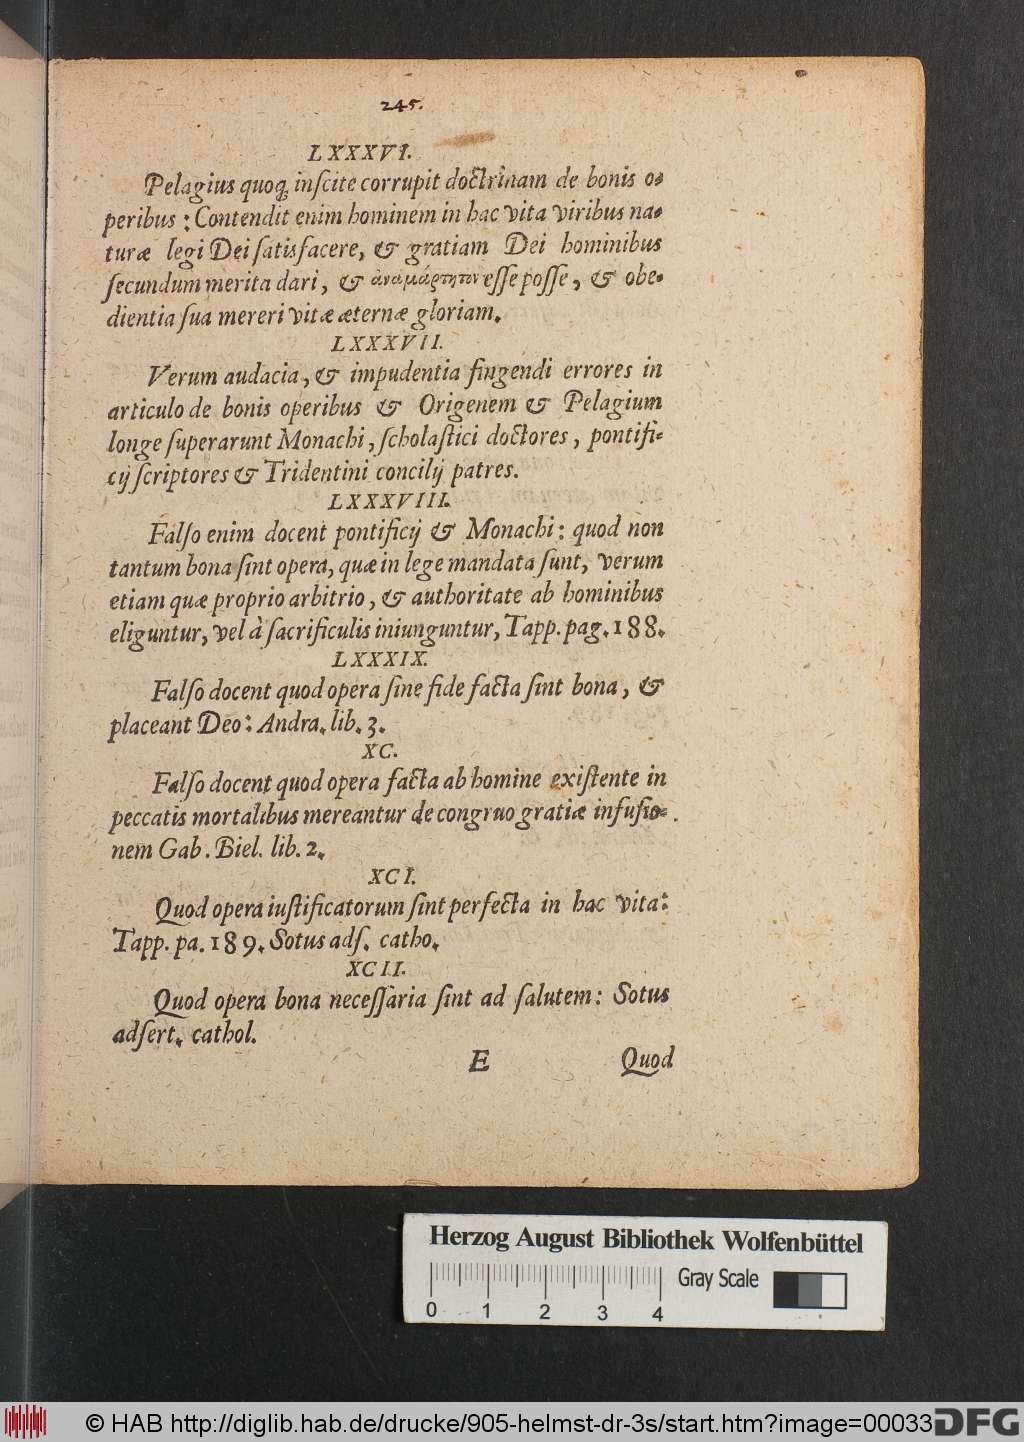 245.
LXXXVI.
Pelagius quoq; inſcite corrupit doctrinam de bonis o-
peribus: Contendit enim hominem in hac vita viribus na-
turæ legi Dei ſatisfacere, & gratiam Dei hominibus
ſecundum merita dari, & ἀναμάρτητον eſſe poſſe, & obe-
dientia ſua mereri vitæ æternæ gloriam.
LXXXVII.
Verum audacia, & impudentia fingendi errores in
articulo de bonis operibus & Origenem & Pelagium
longe ſuperarunt Monachi, ſcholaſtici doctores, pontifi-
cij ſcriptores & Tridentini concilij patres.
LXXXVIII.
Falſo enim docent pontificij & Monachi: quod non
tantum bona ſint opera, quæ in lege mandata ſunt, verum
etiam quæ proprio arbitrio, & authoritate ab hominibus
eliguntur, vel à ſacrificulis iniunguntur, Tapp. pag. 188.
LXXXIX.
Falſo docent quod opera ſine fide facta ſint bona, &
placeant Deo: Andra. lib. 3.
XC.
Falſo docent quod opera facta ab homine exiſtente in
peccatis mortalibus mereantur de congruo gratiæ infuſio-
nem Gab. Biel. lib. 2.
XCI.
Quod opera iuſtificatorum ſint perfecta in hac vita:
Tapp. pa. 189. Sotus adſ. catho.
XCII.
Quod opera bona neceſſaria ſint ad ſalutem: Sotus
adſert. cathol.
E Quod
Herzog August Bibliothek Wolfenbüttel
Gray Scale
0 1 2 3 4
© HAB http://diglib.hab.de/drucke/905-helmst-dr-3s/start.htm?image=00033
DFG